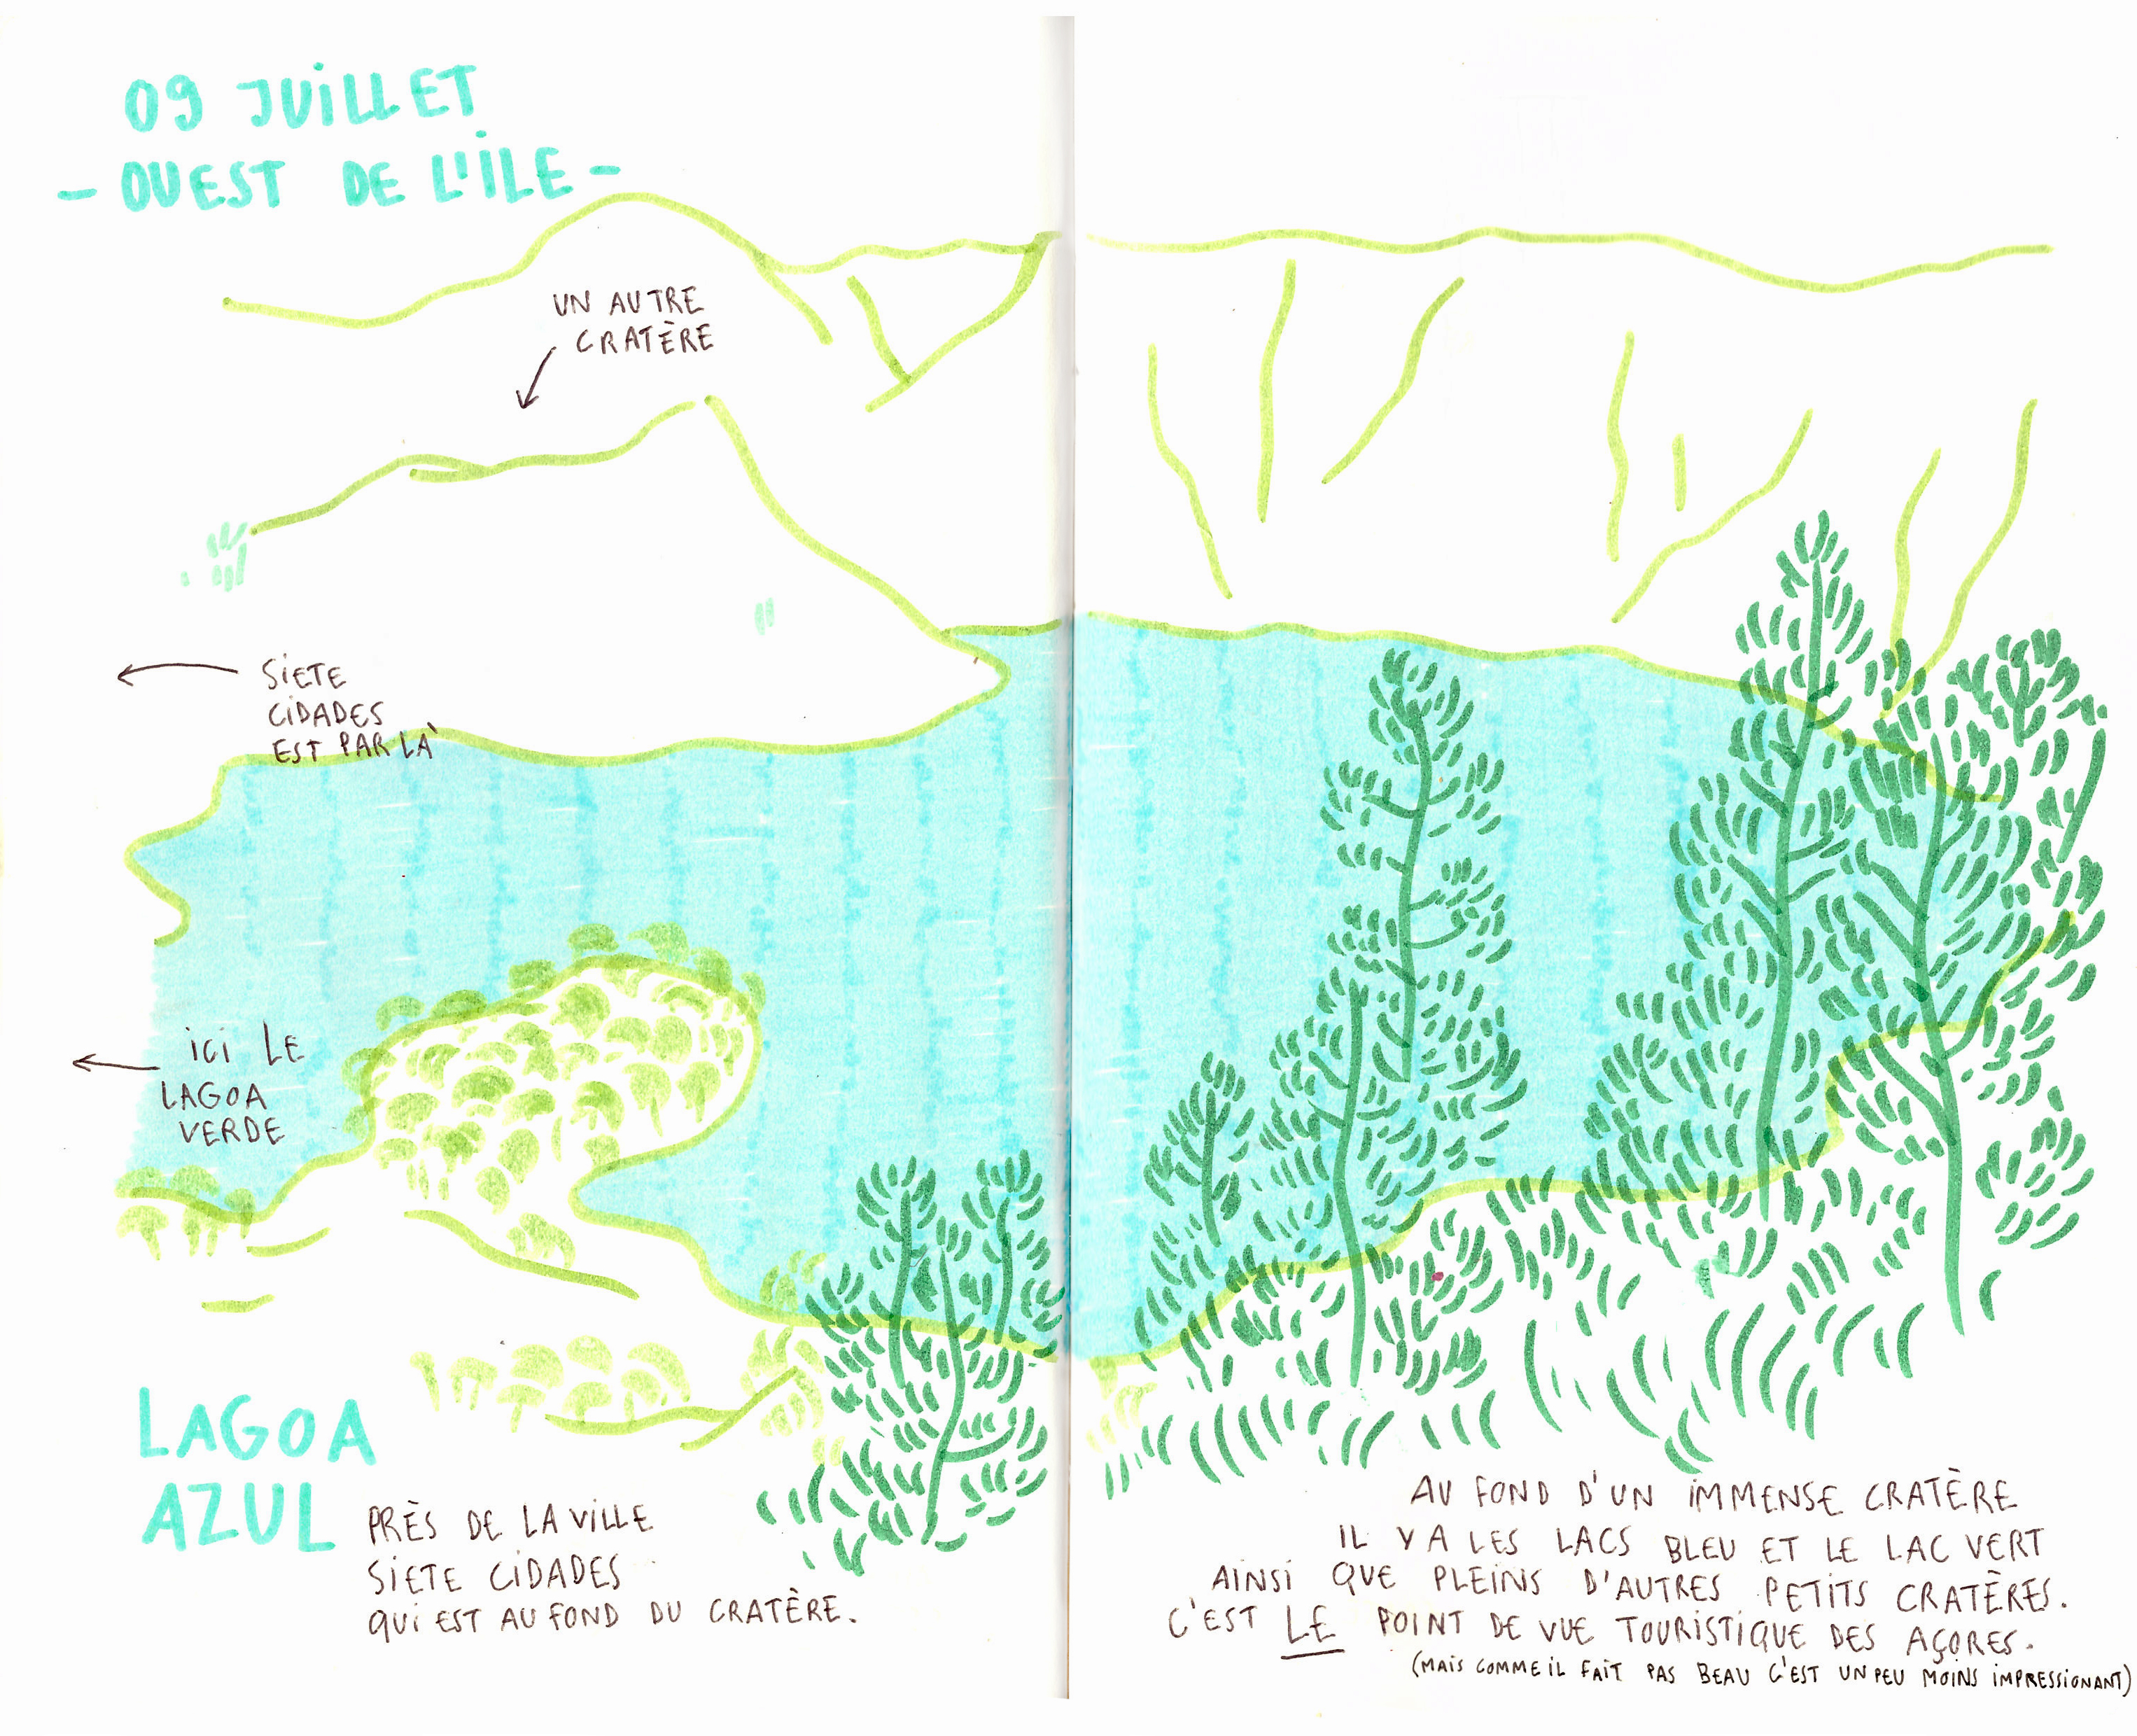 09 JUILLET
- OUEST DE L'ILE -
UN AUTRE
CRATÈRE
SIETE
CIDADES
EST PAR LÀ
ICI LE
LAGOA
VERDE
LAGOA
AZUL
PRÈS DE LA VILLE
SIETE CIDADES
QUI EST AU FOND DU CRATÈRE.
AU FOND D'UN IMMENSE CRATÈRE
IL Y A LES LACS BLEU ET LE LAC VERT
AINSI QUE PLEINS D'AUTRES PETITS CRATÈRES.
C'EST LE POINT DE VUE TOURISTIQUE DES AÇORES.
(MAIS COMME IL FAIT PAS BEAU C'EST UN PEU MOINS IMPRESSIONANT)